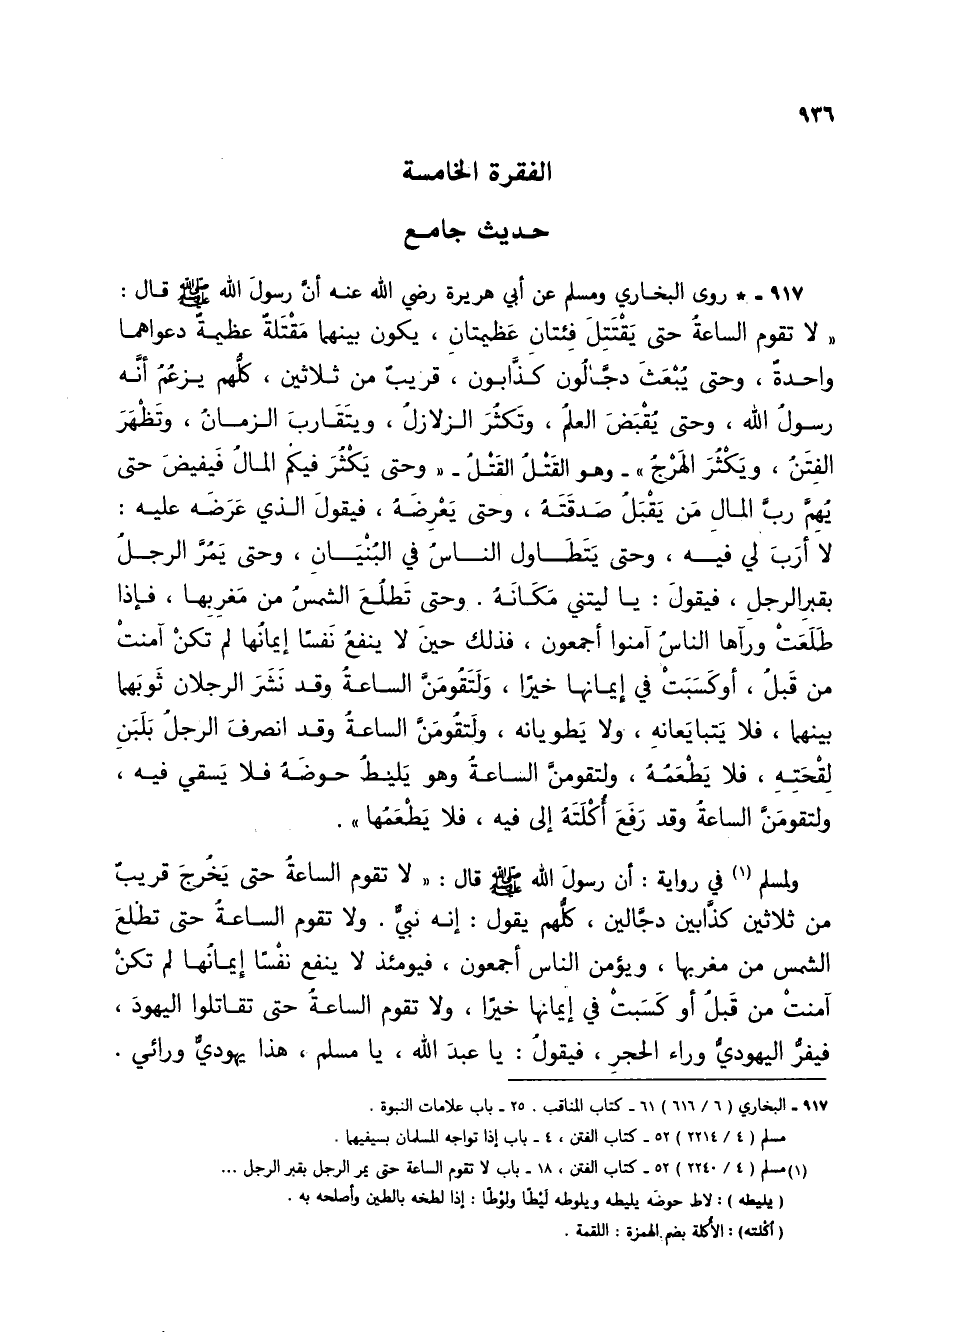 ٩٣٦
الفقرة الخامسة
حديث جامع
٩١٧ - * روى البخاري ومسلم عن أبي هريرة رضي الله عنه أنَّ رسولَ الله ﷺ قال :
« لا تقوم الساعةُ حتى يَقْتَتِلَ فئتان عَظيمتان ، يكون بينهما مَقْتَلةٌ عظيمةٌ دعواهما
واحدةٌ ، وحتى يُبْعَثَ دجَّالون كذَّابون ، قريبٌ من ثلاثين ، كلُّهم يزعمُ أنَّه
رسولُ الله ، وحتى يُقْبَضَ العلمُ ، وتَكثُرَ الزلازلُ ، ويتَقَاربَ الزمانُ ، وتَظْهَرَ
الفتَنُ ، ويَكْثُرَ الهَرْجُ » - وهو القَتْلُ القَتْلُ - « وحتى يَكْثُرَ فيكم المالُ فيَفيضَ حتى
يُهِمَّ ربَّ المال مَن يَقْبَلُ صَدقَتَهُ ، وحتى يَعْرِضَهُ ، فيقولَ الذي عَرَضَه عليه :
لا أرَبَ لي فيه ، وحتى يَتَطَاول الناسُ في البُنْيَان ، وحتى يَمُرَّ الرجلُ
بقبرالرجلِ ، فيقولَ : يا ليتني مَكَانَهُ . وحتى تَطلُعَ الشمسُ من مَغربها ، فإذا
طَلَعَتْ ورآها الناسُ آمنوا أجمعون ، فذلك حينَ لا ينفعُ نَفسًا إيمانُها لم تكنْ آمنتْ
من قَبلُ ، أوكَسَبَتْ في إيمانها خيرًا ، وَلَتَقُومَنَّ الساعةُ وقد نَشَرَ الرجلان ثَوبَهما
بينهما ، فلا يَتبايَعانه ، ولا يَطويانه ، ولَتقُومَنَّ الساعةُ وقد انصرفَ الرجلُ بلَبَنِ
لقْحَتِه ، فلا يَطْعَمُهُ ، ولتقومنَّ الساعةُ وهو يَليطُ حوضَهُ فلا يَسقي فيه ،
ولتقومَنَّ الساعةُ وقد رَفَعَ أُكْلَتَهُ إلى فيه ، فلا يَطْعَمُها » .
ولمسلم (١) في رواية : أن رسولَ الله ﷺ قال : « لا تقوم الساعةُ حتى يَخُرجَ قريبٌ
من ثلاثين كذَّابين دجَّالين ، كلُّهم يقول : إنه نبيٌّ . ولا تقوم الساعةُ حتى تطلعَ
الشمس من مغربها ، ويؤمن الناس أجمعون ، فيومئذ لا ينفع نفْسًا إيمانُها لم تكنْ
آمنتْ من قَبلُ أو كَسَبتْ في إيمانها خيرًا ، ولا تقوم الساعةُ حتى تقاتلوا اليهودَ ،
فيفرُّ اليهوديُّ وراء الحجرِ ، فيقولُ : يا عبدَ الله ، يا مسلم ، هذا يهوديٌّ ورائي .
٩١٧ - البخاري ( ٦ / ٦١٦ ) ٦١ - كتاب المناقب . ٢٥ - باب علامات النبوة .
مسلم ( ٤ / ٢٢١٤ ) ٥٢ - كتاب الفتن ، ٤ - باب إذا تواجه المسلمان بسيفيهما .
(١) مسلم ( ٤ / ٢٢٤٠ ) ٥٢ - كتاب الفتن ، ١٨ - باب لا تقوم الساعة حتى يمر الرجل بقبر الرجل ...
( يليطه ) : لاط حوضَه يليطه ويلوطه لَيْطًا ولَوْطًا : إذا لطخه بالطين وأصلحه به .
( أكلته) : الأُكلة بضم الهمزة : اللقمة .